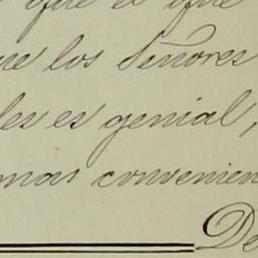 que el que
los Señores
les es genial,
mas convenien
De